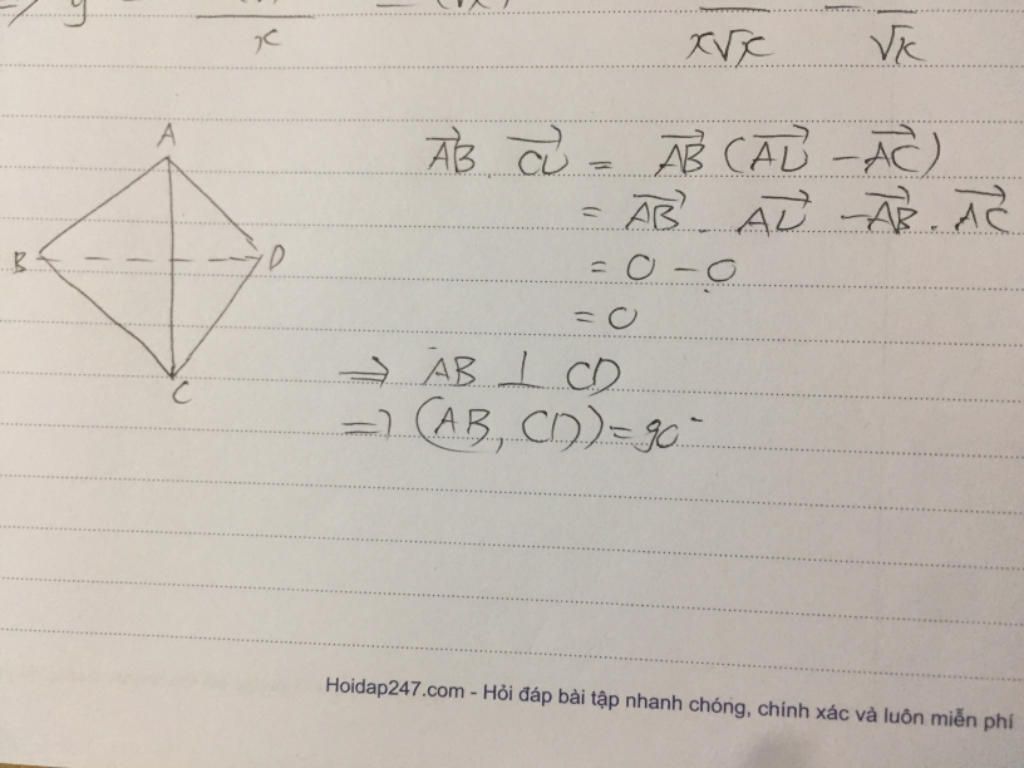 x
x√x √x
A
B
D
C
AB . CD = AB (AD - AC)
= AB . AD - AB . AC
= 0 - 0
= 0
⇒ AB ⊥ CD
⇒ (AB, CD) = 90°
Hoidap247.com - Hỏi đáp bài tập nhanh chóng, chính xác và luôn miễn phí